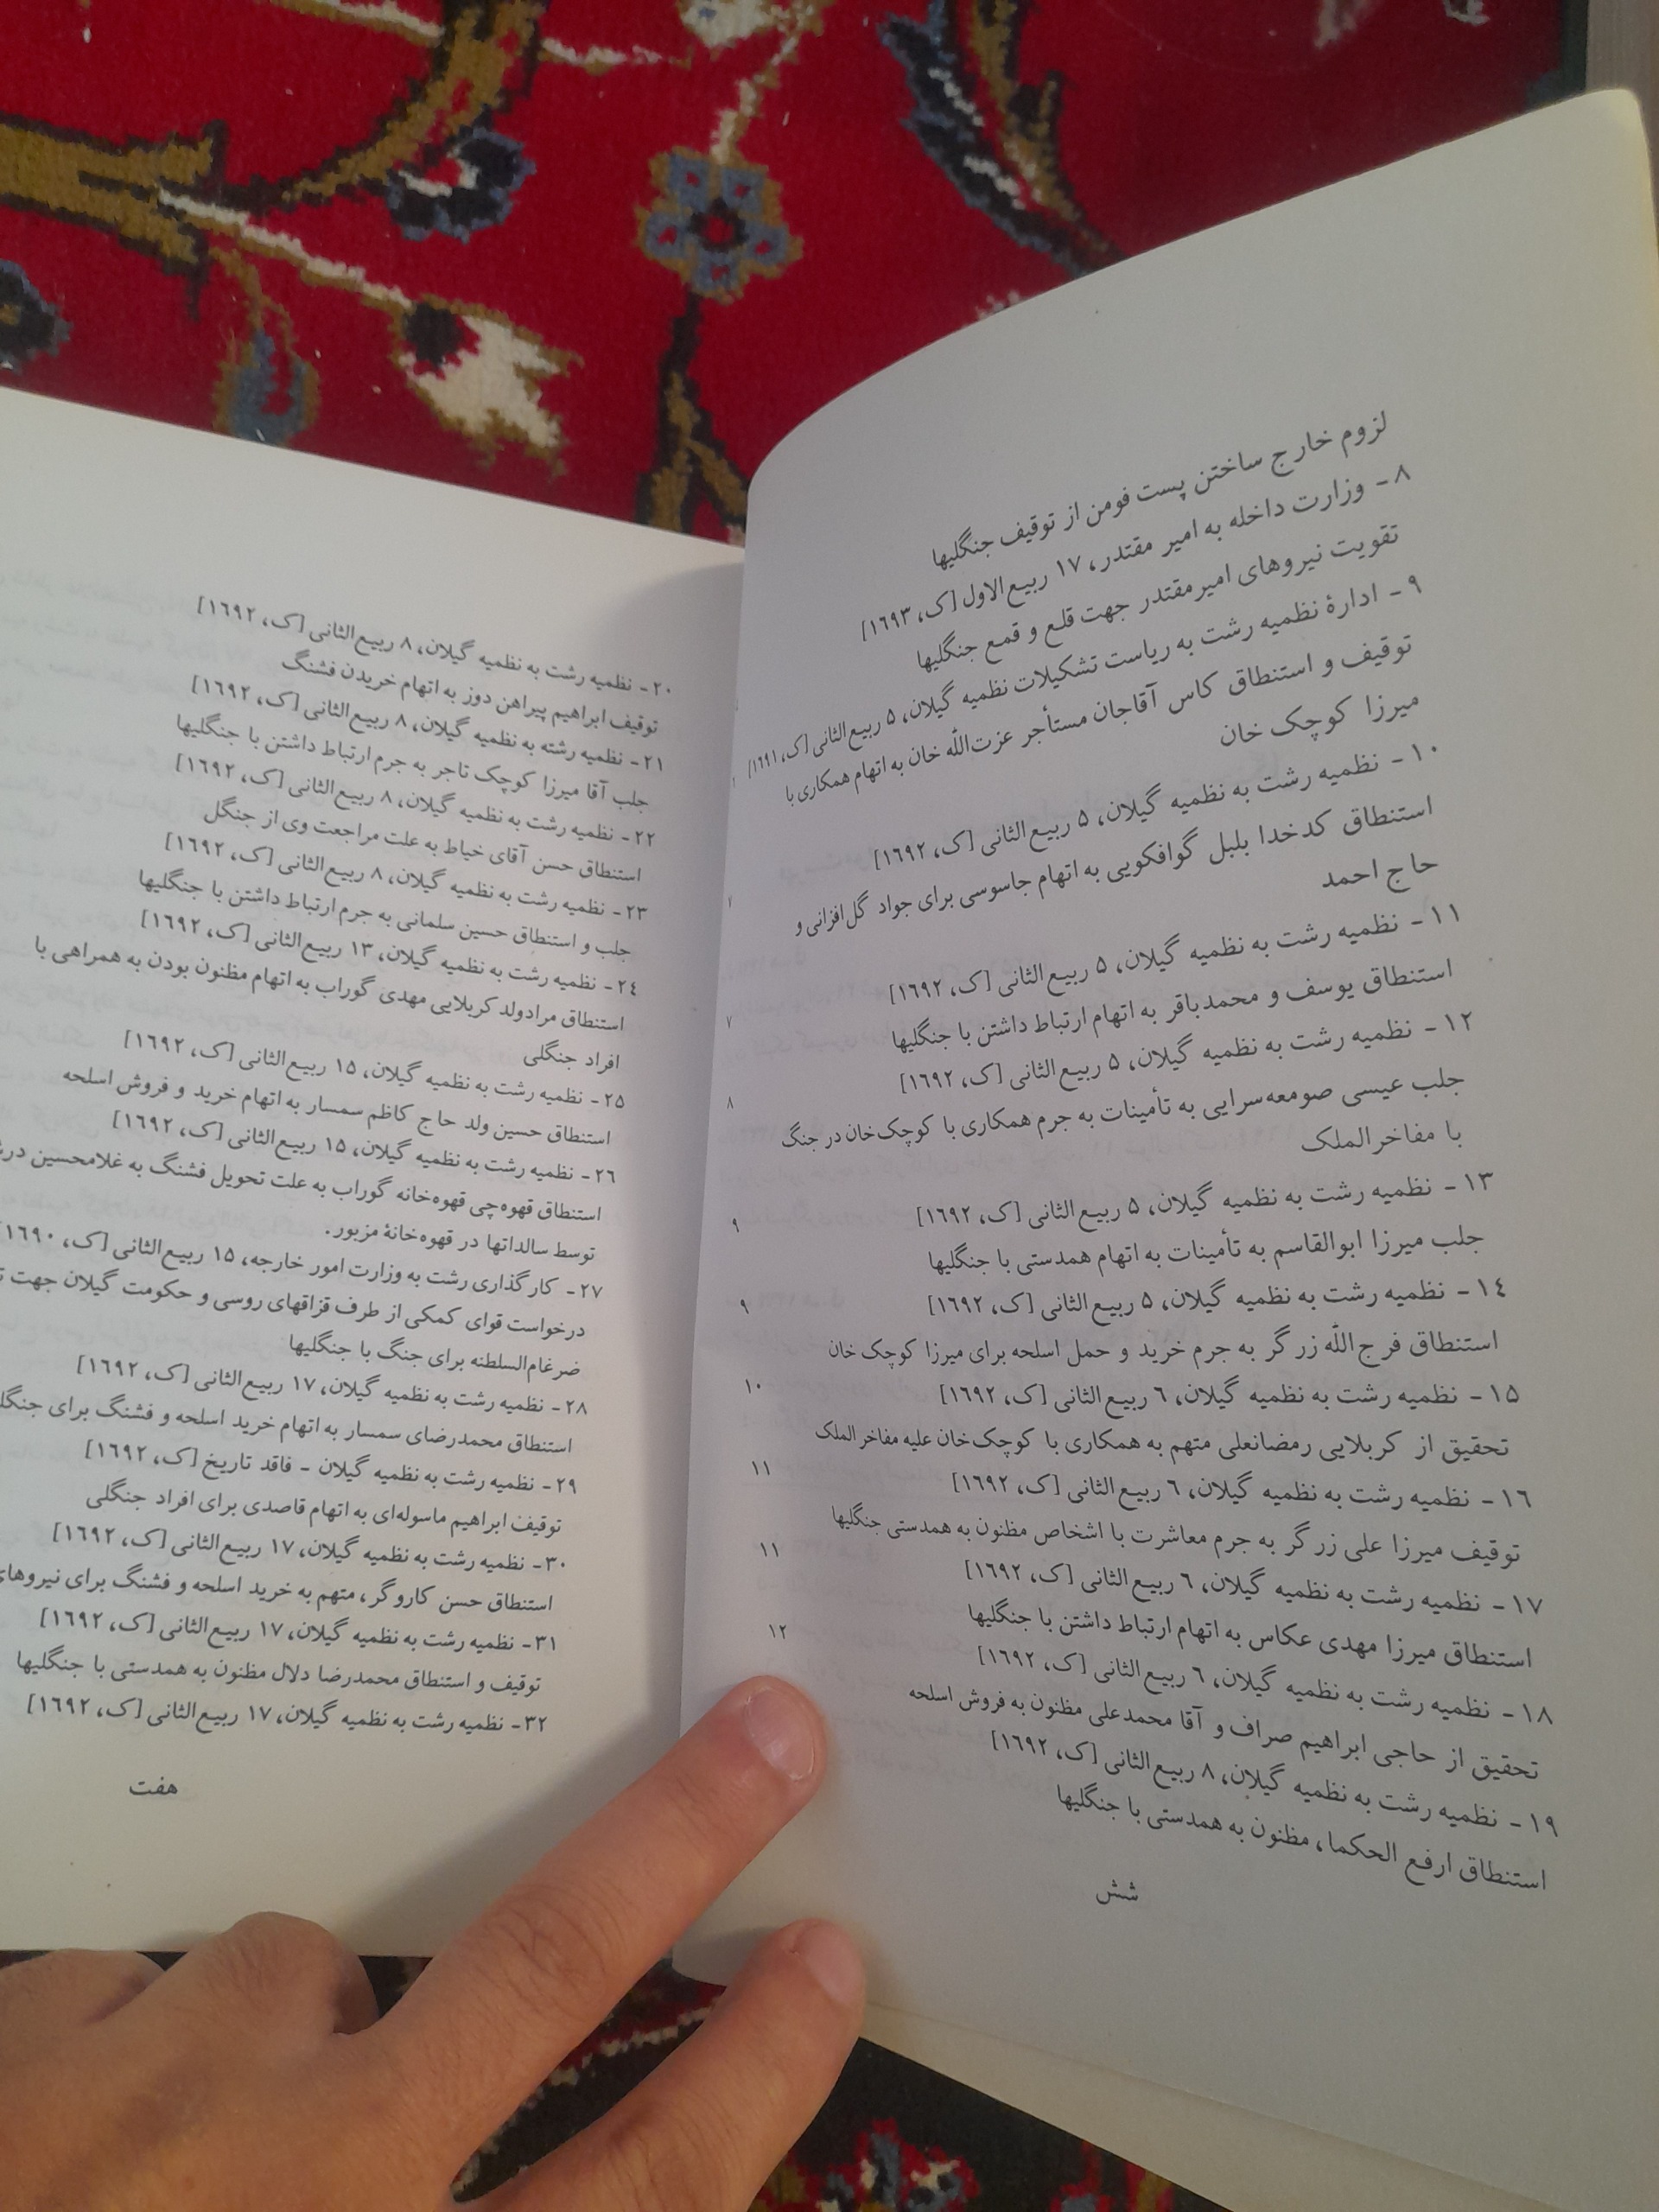 لزوم خارج ساختن پست فومن از توقیف جنگلیها
۸ - وزارت داخله به امیر مقتدر، ۱۷ ربیع‌الاول [ک، ۱۶۹۳]
تقویت نیروهای امیرمقتدر جهت قلع و قمع جنگلیها
۹ - ادارهٔ نظمیه رشت به ریاست تشکیلات نظمیه گیلان، ۵ ربیع‌الثانی [ک، ۱۶۹۱]
توقیف و استنطاق کاس آقاجان مستأجر عزت‌الله خان به اتهام همکاری با
میرزا کوچک خان
۱۰ - نظمیه رشت به نظمیه گیلان، ۵ ربیع‌الثانی [ک، ۱۶۹۲]
استنطاق کدخدا بلبل گوافکویی به اتهام جاسوسی برای جواد گل‌افزانی و
حاج احمد
۱۱ - نظمیه رشت به نظمیه گیلان، ۵ ربیع‌الثانی [ک، ۱۶۹۲]
استنطاق یوسف و محمدباقر به اتهام ارتباط داشتن با جنگلیها ۷
۱۲ - نظمیه رشت به نظمیه گیلان، ۵ ربیع‌الثانی [ک، ۱۶۹۲]
جلب عیسی صومعه‌سرایی به تأمینات به جرم همکاری با کوچک‌خان در جنگ ۸
با مفاخرالملک
۱۳ - نظمیه رشت به نظمیه گیلان، ۵ ربیع‌الثانی [ک، ۱۶۹۲] ۹
جلب میرزا ابوالقاسم به تأمینات به اتهام همدستی با جنگلیها
۱۴ - نظمیه رشت به نظمیه گیلان، ۵ ربیع‌الثانی [ک، ۱۶۹۲] ۹
استنطاق فرج‌الله زرگر به جرم خرید و حمل اسلحه برای میرزا کوچک خان
۱۵ - نظمیه رشت به نظمیه گیلان، ۶ ربیع‌الثانی [ک، ۱۶۹۲] ۱۰
تحقیق از کربلایی رمضانعلی متهم به همکاری با کوچک‌خان علیه مفاخرالملک
۱۶ - نظمیه رشت به نظمیه گیلان، ۶ ربیع‌الثانی [ک، ۱۶۹۲] ۱۱
توقیف میرزا علی زرگر به جرم معاشرت با اشخاص مظنون به همدستی جنگلیها
۱۷ - نظمیه رشت به نظمیه گیلان، ۶ ربیع‌الثانی [ک، ۱۶۹۲] ۱۱
استنطاق میرزا مهدی عکاس به اتهام ارتباط داشتن با جنگلیها
۱۸ - نظمیه رشت به نظمیه گیلان، ۶ ربیع‌الثانی [ک، ۱۶۹۲] ۱۲
تحقیق از حاجی ابراهیم صراف و آقا محمدعلی مظنون به فروش اسلحه
۱۹ - نظمیه رشت به نظمیه گیلان، ۸ ربیع‌الثانی [ک، ۱۶۹۲]
استنطاق ارفع الحکما، مظنون به همدستی با جنگلیها
شش
۲۰ - نظمیه رشت به نظمیه گیلان، ۸ ربیع‌الثانی [ک، ۱۶۹۲]
توقیف ابراهیم پیراهن دوز به اتهام خریدن فشنگ
۲۱ - نظمیه رشته به نظمیه گیلان، ۸ ربیع‌الثانی [ک، ۱۶۹۲]
جلب آقا میرزا کوچک تاجر به جرم ارتباط داشتن با جنگلیها
۲۲ - نظمیه رشت به نظمیه گیلان، ۸ ربیع‌الثانی [ک، ۱۶۹۲]
استنطاق حسن آقای خیاط به علت مراجعت وی از جنگل
۲۳ - نظمیه رشت به نظمیه گیلان، ۸ ربیع‌الثانی [ک، ۱۶۹۲]
جلب و استنطاق حسین سلمانی به جرم ارتباط داشتن با جنگلیها
۲۴ - نظمیه رشت به نظمیه گیلان، ۱۳ ربیع‌الثانی [ک، ۱۶۹۲]
استنطاق مرادولد کربلایی مهدی گوراب به اتهام مظنون بودن به همراهی با
افراد جنگلی
۲۵ - نظمیه رشت به نظمیه گیلان، ۱۵ ربیع‌الثانی [ک، ۱۶۹۲]
استنطاق حسین ولد حاج کاظم سمسار به اتهام خرید و فروش اسلحه
۲۶ - نظمیه رشت به نظمیه گیلان، ۱۵ ربیع‌الثانی [ک، ۱۶۹۲]
استنطاق قهوه‌چی قهوه‌خانه گوراب به علت تحویل فشنگ به غلامحسین
توسط سالداتها در قهوه‌خانهٔ مزبور.
۲۷ - کارگذاری رشت به وزارت امور خارجه، ۱۵ ربیع‌الثانی [ک، ۱۶۹۰
درخواست قوای کمکی از طرف قزاقهای روسی و حکومت گیلان جهت
ضرغام‌السلطنه برای جنگ با جنگلیها
۲۸ - نظمیه رشت به نظمیه گیلان، ۱۷ ربیع‌الثانی [ک، ۱۶۹۲]
استنطاق محمدرضای سمسار به اتهام خرید اسلحه و فشنگ برای
۲۹ - نظمیه رشت به نظمیه گیلان - فاقد تاریخ [ک، ۱۶۹۲]
توقیف ابراهیم ماسوله‌ای به اتهام قاصدی برای افراد جنگلی
۳۰ - نظمیه رشت به نظمیه گیلان، ۱۷ ربیع‌الثانی [ک، ۱۶۹۲]
استنطاق حسن کاروگر، متهم به خرید اسلحه و فشنگ برای نیروهای
۳۱ - نظمیه رشت به نظمیه گیلان، ۱۷ ربیع‌الثانی [ک، ۱۶۹۲]
توقیف و استنطاق محمدرضا دلال مظنون به همدستی با جنگلیها
۳۲ - نظمیه رشت به نظمیه گیلان، ۱۷ ربیع‌الثانی [ک، ۱۶۹۲]
هفت